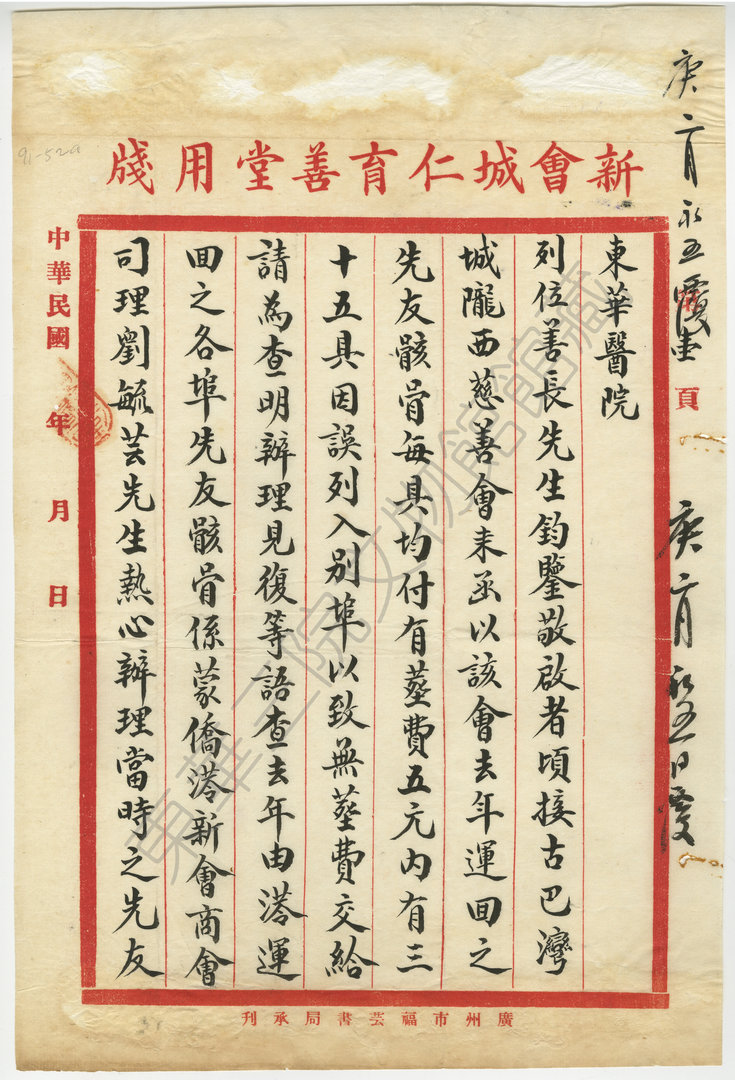 新會城仁育善堂用牋
東華醫院
列位善長先生鈞鑒敬啟者頃接古巴灣
城隴西慈善會來函以該會去年運回之
先友骸骨每具均付有塟費五元內有三
十五具因誤列入別埠以致無塟費交給
請為查明辦理見復等語查去年由港運
回之各埠先友骸骨係蒙僑港新會商會
司理劉毓芸先生熱心辦理當時之先友
中華民國 年 月 日
頁
廣州市福芸書局承刊
91-52a
東華三院文物館館藏